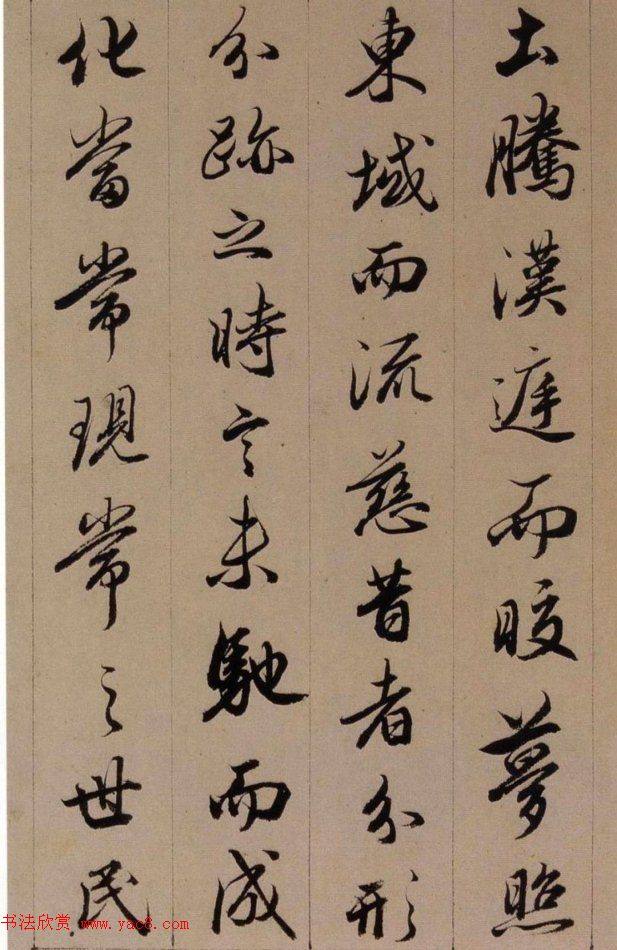 土騰漢庭而皎夢照
東域而流慈昔者分形
分跡之時言未馳而成
化當常現常之世民
书法欣赏 www.yac8.com